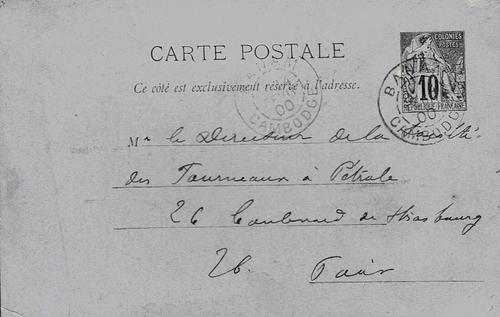 CARTE POSTALE
COLONIES
POSTES
10
RÉPUBLIQUE FRANÇAISE
Ce côté est exclusivement réservé à l'adresse.
00
CAMBODGE
BANAM
00
CAMBODGE
Mr le Directeur de la Société
des Fourneaux à Pétrole
26 Boulevard de Strasbourg
26. Paris